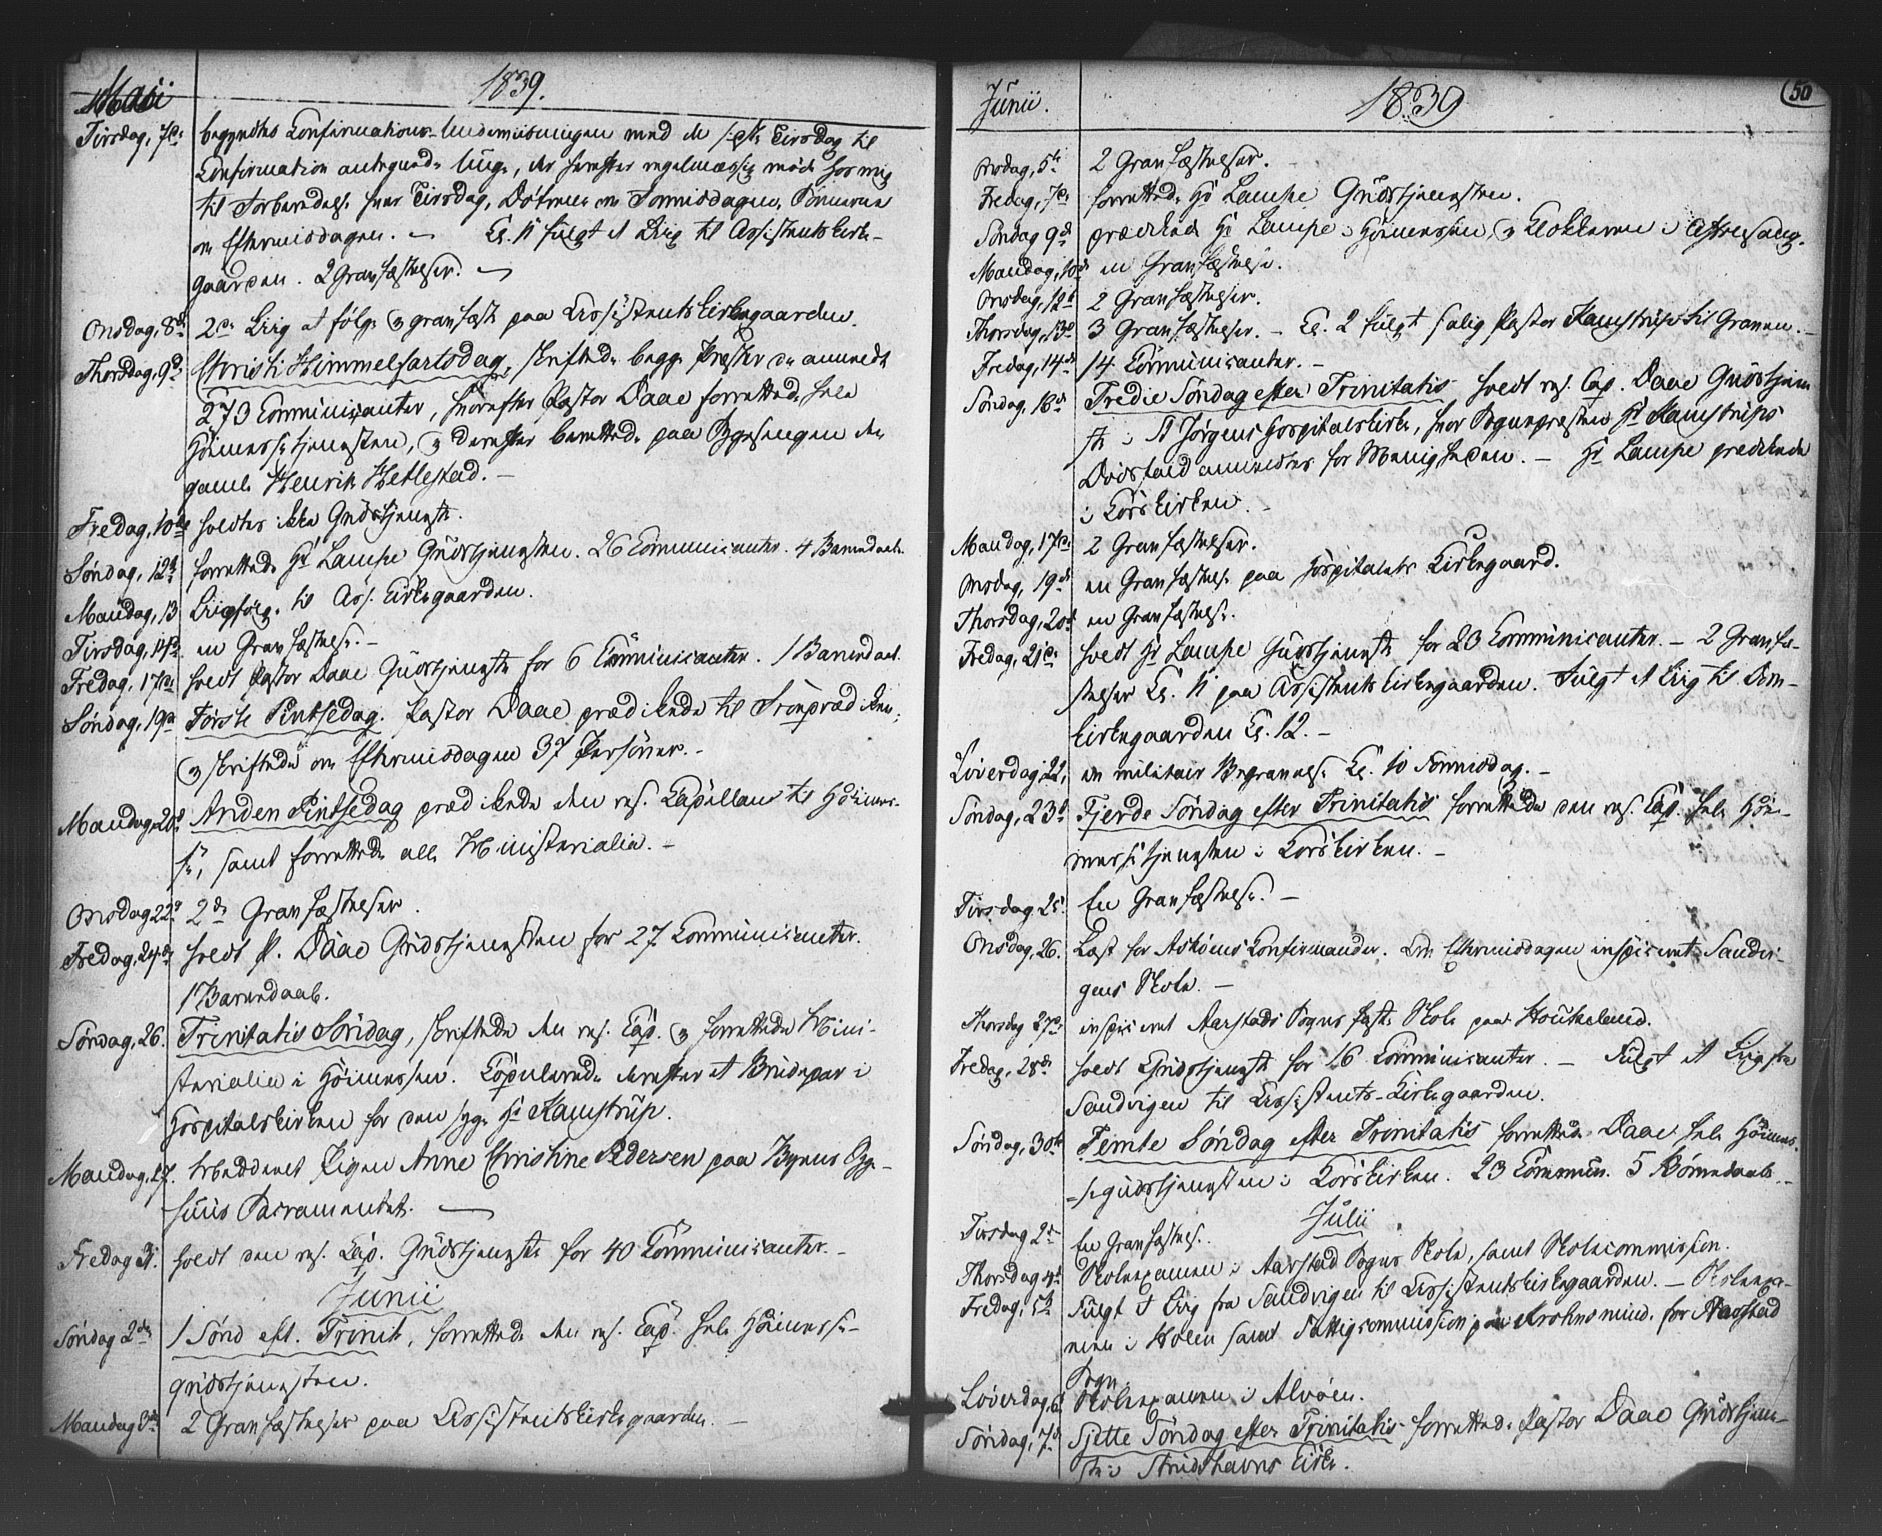 Maii 1839.
Tirsdag, 7de begyndtes Confirmations-Underviisningen med de sidste Tirsdag til
Confirmation antegnede Unge, der herefter regelmæssig møde hos mig
til Forberedelse hver Tirsdag, Døtrene om Formiddagen, Sønnerne
om Eftermiddagen. — Kl. 11 fulgt et Liig til Assistents Kirke-
gaarden. 2 Gravfæstelser. —
Onsdag, 8de 2de Liig at følge og gravfæste paa Assistents Kirkegaarden.
Thorsdag, 9de Christi Himmelfartsdag, skriftede begge Præster de anmeldte
273 Communicanter, hvorefter Pastor Daae forrettede hele
Høimessetjenesten, og derefter berettede paa Bygesengen den
gamle Henrik Hetlestad. —
Fredag, 10de holdtes ikke Gudstjeneste.
Søndag, 12te forrettede Hr Lampe Gudstjenesten. 26 Communicanter. 4 Barnedaab.
Mandag, 13 Liigfølge til Ass. Kirkegaarden.
Tirsdag, 14de en Gravfæstelse. —
Fredag, 17de holdt Pastor Daae Gudstjeneste for 6 Communicanter. 1 Barnedaab.
Søndag, 19de Første Pintsedag. Pastor Daae prædikede til Froprædiken,
og skriftede om Eftermiddagen 37 Personer. —
Mandag, 20de Anden Pintsedag prædikede den res. Capellan til Høimes-
se, samt forrettede alle Ministerialia. —
Onsdag 22de 2de Gravfæstelser.
Fredag, 24de holdt P. Daae Gudstjenesten for 27 Communicanter.
1 Barnedaab.
Søndag, 26. Trinitatis Søndag, skriftede den res. Cap. og forrettede Mini-
sterialia i Høimessen. Copulerede derefter et Brudepar i
Hospitalskirken for den syge Hr Kamstrup.
Mandag, 27. betjent Pigen Anne Christine Pedersen paa Byens Syge-
huus Sacramentet. —
Fredag 31. holdt den res. Cap. Gudstjeneste for 40 Communicanter. —
Junii
Søndag 2de 1 Sønd eft. Trinit, forrettede den res. Cap. hele Høimesse-
gudstjenesten.
Mandag 3de 2 Gravfæstelser paa Assistents Kirkegaarden. —
Junii. 1839 50
Onsdag, 5te 2 Gravfæstelser.
Fredag, 7de forrettede Hr Lampe Gudstjenesten.
Søndag 9de prædikede Hr Lampe i Høimessen, og Klokkeren i Aftensang.
Mandag, 10de en Gravfæstelse.
Onsdag, 12te 2 Gravfæstelser.
Thorsdag, 13de 3 Gravfæstelser. — Kl. 2 fulgt salig Pastor Kamstrup til Graven. —
Fredag, 14de 14 Communicanter. —
Søndag, 16de Tredie Søndag efter Trinitatis holdt res. Cap. Daae Gudstjene-
ste i St Jørgens Hospitals Kirke, hvor Sognepræsten Hr Kamstrups
Dødsfald anmeldtes for Menigheden. — Hr Lampe prædikede
i Korskirken. —
Mandag, 17de 2 Gravfæstelser.
Onsdag, 19de en Gravfæstelse paa Hospitalets Kirkegaard.
Thorsdag, 20de en Gravfæstelse.
Fredag, 21de holdt Hr Lampe Gudstjeneste for 23 Communicanter. — 2 Gravfæ-
stelser Kl. 11 paa Assistents Kirkegaarden. Fulgt et Liig til Dom-
kirkegaarden Kl. 12. —
Løverdag, 22, en militair Begravelse Kl. 10 Formiddag. —
Søndag, 23de Fjerde Søndag efter Trinitatis forrettede den res. Cap. hele Høi-
messetjenesten i Korskirken. —
Tirsdag, 25. En Gravfæstelse. —
Onsdag, 26. Læst for Askøens Confirmander. Om Eftermiddagen inspiceret Sandvi-
gens Skole. —
Thorsdag 27de inspiceret Aarstads Sogns faste Skole paa Houkeland.
Fredag, 28de holdt Gudstjeneste for 16 Communicanter. — Fulgt et Liig fra
Sandvigen til Assistents-Kirkegaarden.
Søndag, 30te Femte Søndag efter Trinitatis forrettede Daae hele Høimes-
segudstjenesten i Korskirken. 23 Commun. 5 Børnedaab. —
Julii
Tirsdag 2de En Gravfæstelse.
Thorsdag 4de Skoleexamen i Aarstad Sogns Skole, samt Skolecommission.
Fredag, 5te Fulgt et Liig fra Sandvigen til Assistents Kirkegaarden. — Skoleexa-
men i Holen samt Fattigcommission paa Krohnsminde for Aarstad
Sogn.
Løverdag, 6. Skoleexamen i Alvøen.
Søndag, 7de Sjette Søndag efter Trinitatis forrettede Pastor Daae Gudstjene-
ste i Strudshavns Kirke.